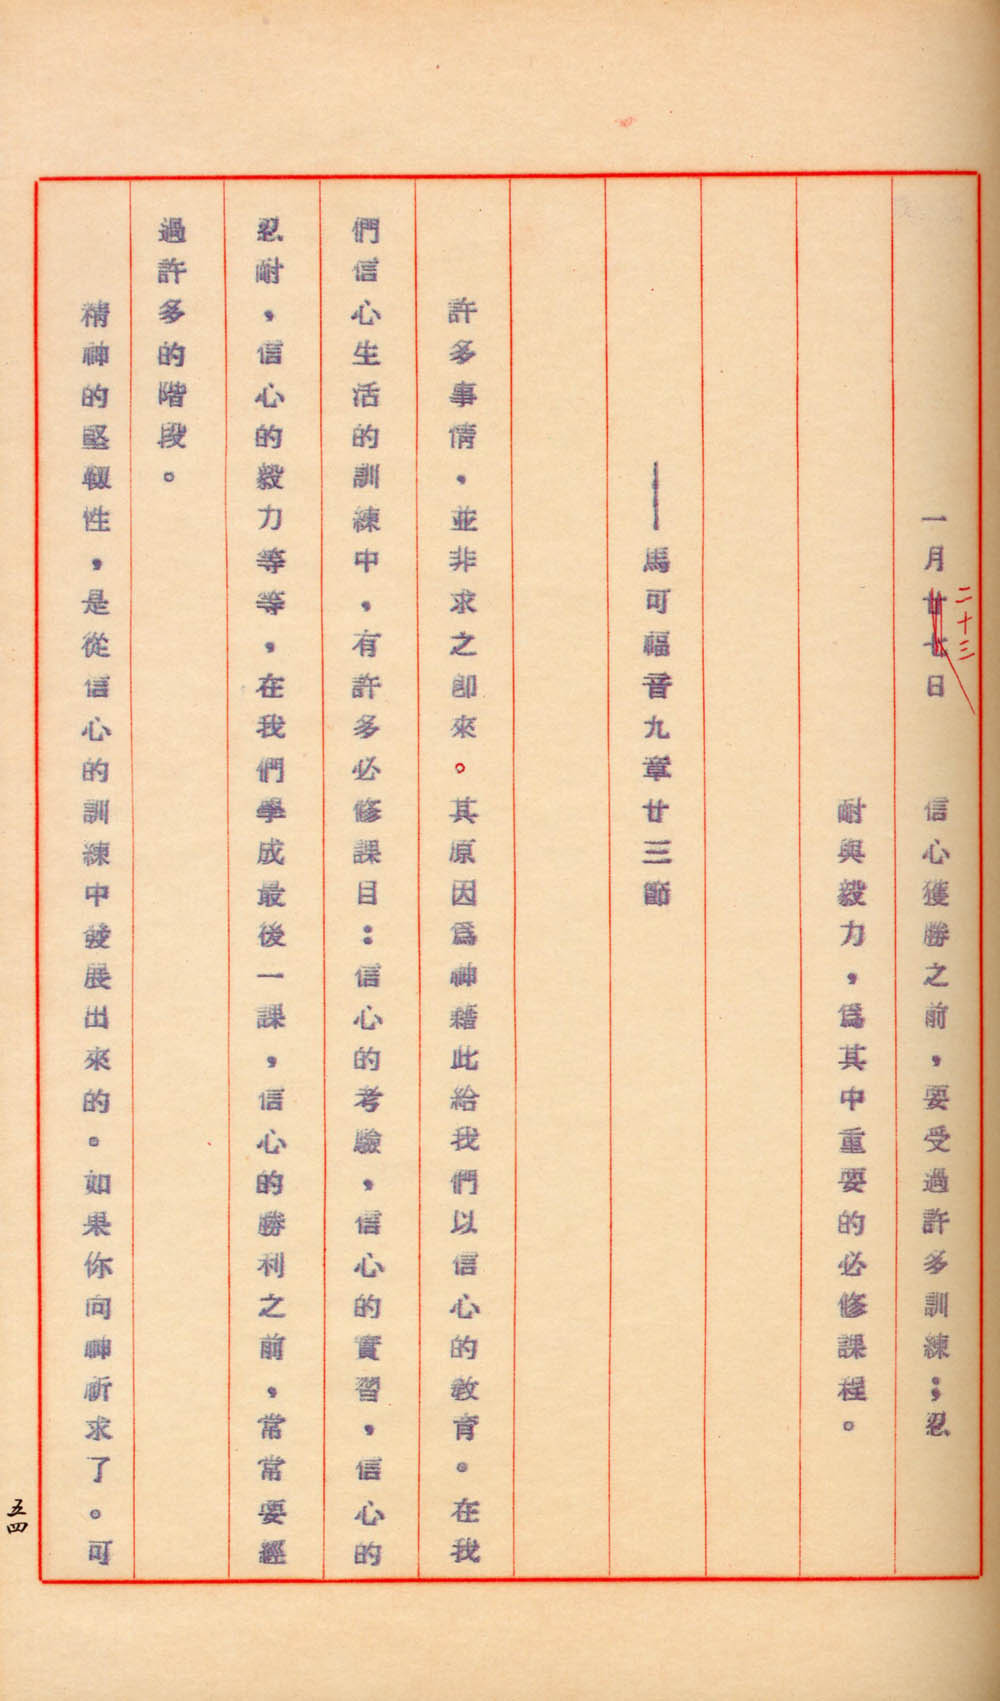 一月廿七日　信心獲勝之前，要受過許多訓練；忍
二十三
耐與毅力，為其中重要的必修課程。
——馬可福音九章廿三節
許多事情，並非求之即來。其原因為神藉此給我們以信心的教育。在我
們信心生活的訓練中，有許多必修課目：信心的考驗，信心的實習，信心的
忍耐，信心的毅力等等，在我們學成最後一課，信心的勝利之前，常常要經
過許多的階段。
精神的堅韌性，是從信心的訓練中發展出來的。如果你向神祈求了。可
五四